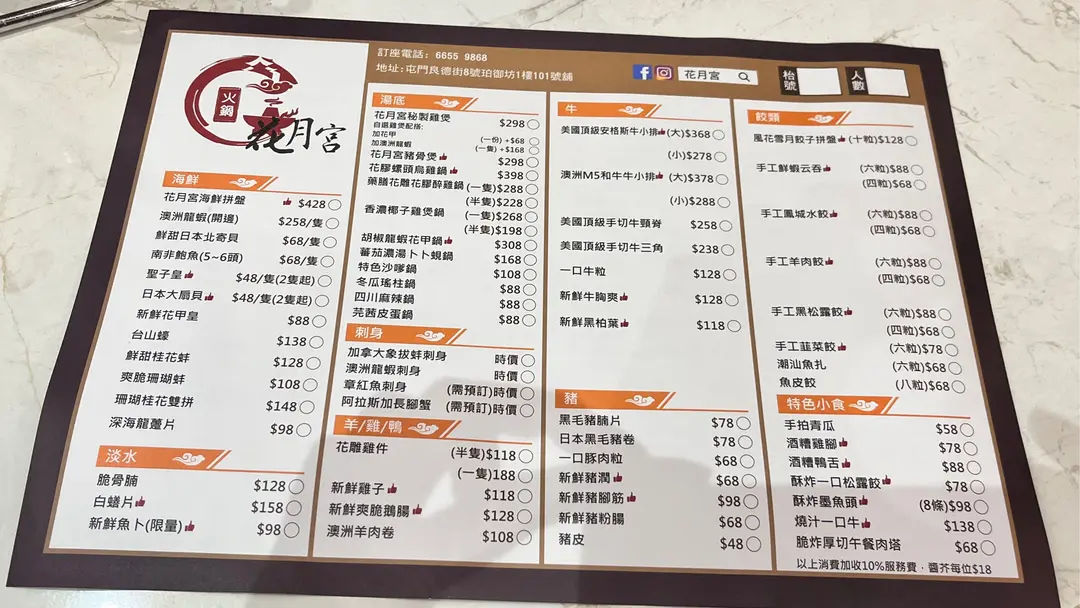 火鍋
花月宮
訂座電話: 6655 9868
地址:屯門良德街8號珀御坊1樓101號舖
花月宮
枱號
人數
海鮮
花月宮海鮮拼盤 $428
澳洲龍蝦(開邊) $258/隻
鮮甜日本北寄貝 $68/隻
南非鮑魚(5~6頭) $68/隻
聖子皇 $48/隻(2隻起)
日本大扇貝 $48/隻(2隻起)
新鮮花甲皇 $88
台山蠔 $138
鮮甜桂花蚌 $128
爽脆珊瑚蚌 $108
珊瑚桂花雙拼 $148
深海龍躉片 $98
淡水
脆骨腩 $128
白鱔片 $158
新鮮魚卜(限量) $98
湯底
花月宮秘製雞煲 $298
自選雞煲配搭:
加花甲 (一份) +$68
加澳洲龍蝦 (一隻) +$168
花月宮豬骨煲 $298
花膠螺頭烏雞鍋 $398
藥膳花雕花膠醉雞鍋 (一隻)$288
(半隻)$228
香濃椰子雞煲鍋 (一隻)$268
(半隻)$198
胡椒龍蝦花甲鍋 $308
蕃茄濃湯卜卜蜆鍋 $168
特色沙嗲鍋 $108
冬瓜瑤柱鍋 $88
四川麻辣鍋 $88
芫茜皮蛋鍋 $88
刺身
加拿大象拔蚌刺身 時價
澳洲龍蝦刺身 時價
章紅魚刺身 (需預訂)時價
阿拉斯加長腳蟹 (需預訂)時價
羊/雞/鴨
花雕雞件 (半隻)$118
(一隻)188
新鮮雞子 $118
新鮮爽脆鵝腸 $128
澳洲羊肉卷 $108
牛
美國頂級安格斯牛小排 (大)$368
(小)$278
澳洲M5和牛牛小排 (大)$378
(小)$288
美國頂級手切牛頸脊 $258
美國頂級手切牛三角 $238
一口牛粒 $128
新鮮牛胸爽 $128
新鮮黑柏葉 $118
豬
黑毛豬腩片 $78
日本黑毛豬卷 $78
一口豚肉粒 $68
新鮮豬潤 $68
新鮮豬腳筋 $98
新鮮豬粉腸 $68
豬皮 $48
餃類
風花雪月餃子拼盤 (十粒)$128
手工鮮蝦云吞 (六粒)$88
(四粒)$68
手工鳳城水餃 (六粒)$88
(四粒)$68
手工羊肉餃 (六粒)$88
(四粒)$68
手工黑松露餃 (六粒)$88
(四粒)$68
手工韮菜餃 (六粒)$78
潮汕魚扎 (六粒)$68
魚皮餃 (八粒)$68
特色小食
手拍青瓜 $58
酒糟雞腳 $78
酒糟鴨舌 $88
酥炸一口松露餃 $78
酥炸墨魚頭 (8條)$98
燒汁一口牛 $138
脆炸厚切午餐肉塔 $68
以上消費加收10%服務費，醬芥每位$18